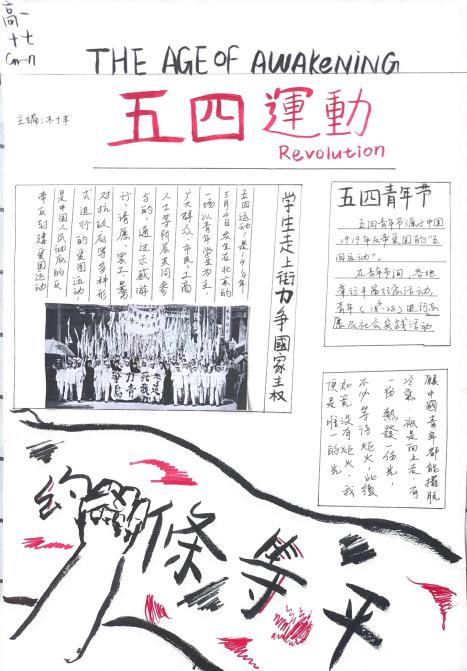 高一
十七
THE AGE OF AWAKENING
主编:木十羊
五四運動
Revolution
五四运动，是1919年
5月4日发生在北京的
一场以青年学生为主，
广大群众、市民、工商
人士等阶层共同参
与的，通过示威游
行、请愿、罢工、暴力
对抗政府等多种形
式进行的爱国运动
是中国人民彻底的反
帝反封建爱国运动
学生走上街力争國家主权
五四青年节
五四青年节源于中国
1919年反帝爱国的"五
四运动"。
在青年节间，各地
举行丰富纪念活动，
青年(14-28)进行志
愿及社会实践活动
願中國青年都能擺脫
冷氣，祇是向上走，有
一份熱發一份光，
不必等待炬火，此後
如竟没有炬火，我
便是唯一的光
約
條
等
平